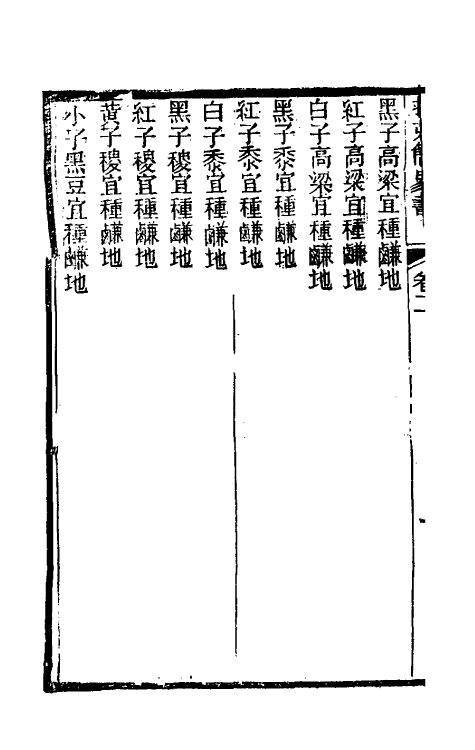 黑子高粱宜種鹻地
紅子高粱宜種鹻地
白子高粱宜種鹻地
黑子黍宜種鹻地
紅子黍宜種鹻地
白子黍宜種鹻地
黑子稷宜種鹻地
紅子稷宜種鹻地
黃子稷宜種鹻地
小子黑豆宜種鹻地